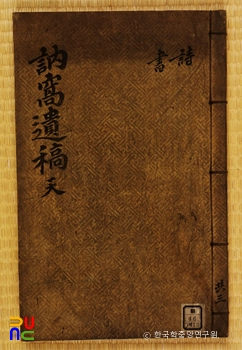 詩
書
訥窩遺稿 天
共三
© 한국학중앙연구원